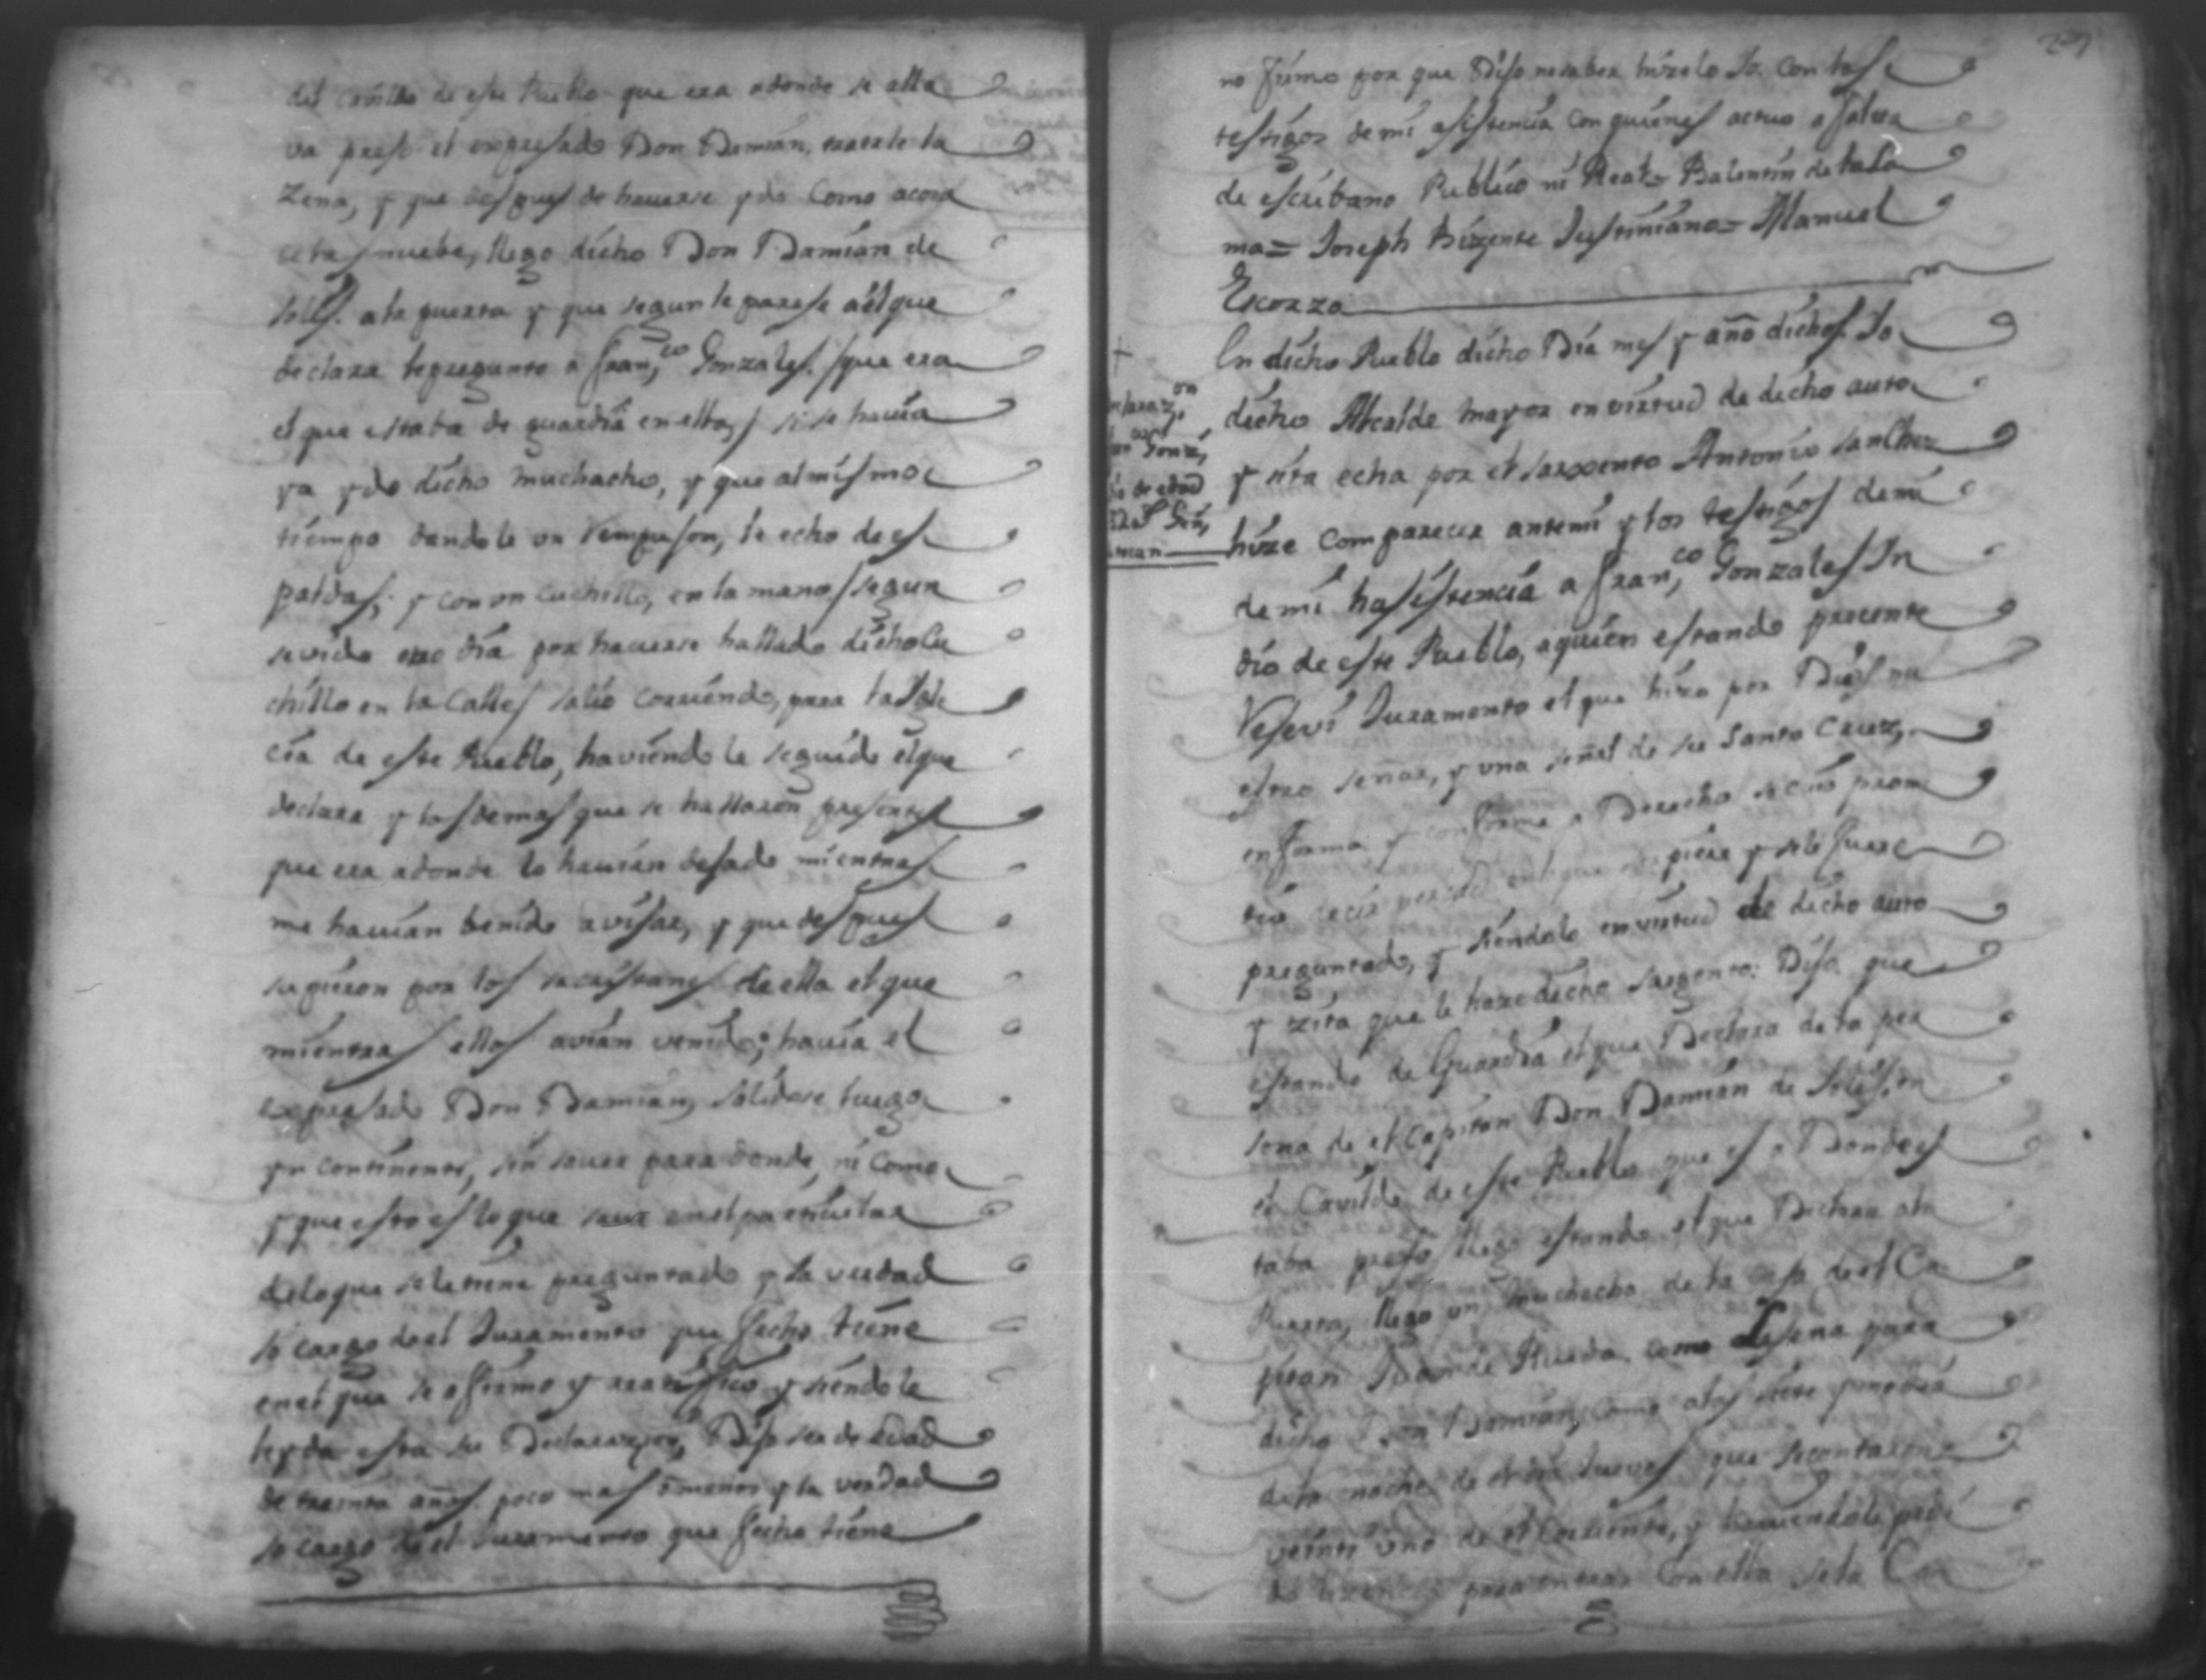 del cavildo de este Pueblo que era adonde se alla
va preso el expresado Don Damian, traerle la
Zena, y que despues de haverse ydo Como acosa
de las nuebe, llego dicho Don Damian de
Solis. a la puerta y que segun le parese a el que
declara le pregunto a Fran,co Gonzales. que era
el que estaba de guardia en ella, si se havia
ya ydo dicho muchacho, y que al mismo
tiempo dandole un Rempuson, le echo de es
paldas; y con un cuchillo, en la mano segun
se vido otro dia por haverse hallado dicho Cu
chillo en la Calle salio corriendo, para la Ygle
cia de este Pueblo, haviendole seguido el que
declara y los demas que se hallaron presentes
que era adonde lo havian dejado mientras
me havian benido avisar, y que despues
supieron por los sacristanes de ella el que
mientras ellos avian venido; havia el
expresado Don Damian, salidose luego
yn continente, sin saver para donde, ni Como
y que esto es lo que save en el particular
de lo que se le tiene preguntado y la verdad
so cargo de el Juramento que fecho tiene
en el que se afirmo y ratifico y siendole
leyda esta su Declarazion, Dijo ser de edad
de treinta años. poco mas o menos y la verdad
so cargo de el Juramento que fecho tiene
no firmo por que Dijo no saber hizelo Yo. con los
testigos de mi asistencia con quienes actuo a falta
de escribano Publico ni Real = Balentin de
ma = Joseph Bizente Justiniano = Manuel
Escorza
En dicho Pueblo dicho Dia mes y año dichos. Yo
dicho Alcalde mayor en virtud de dicho auto
y sita echa por el Sargento Antonio Sanchez
hize comparecer ante mi y los testigos de mi
de mi hasistencia a Fran,co Gonzales Yn
dio de este Pueblo, a quien estando precente
Reseví Juramento el que hizo por Dios nu
estro Señor, y una señal de su Santa Cruz,
en forma y conforme a Derecho so cuio prom
tio decir verdad en lo que supiere y se le fuere
preguntado, y siendolo en virtud de dicho auto
y zita que le haze dicho Sargento: Dijo que
estando de Guardia el que Declara de la per
sona de el Capitan Don Damian de Solis, en
el Cavildo de este Pueblo que es a Donde es
taba preso llego estando el que Declara a la
Puerta, llego un muchacho de la casa de el Ca
pitan Juan de Rueda con la Sena para
dicho Don Damian, como a las siete
de la noche de el dia Jueves que se contaron
veinti uno de el Corriente, y haviendole pedi
do lizencia para entrar con ella se la Con